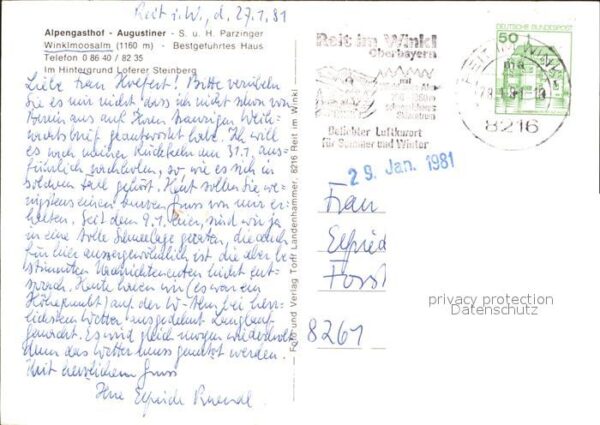 Reit i. W., d. 27.1.81
Alpengasthof - Augustiner - S. u. H. Parzinger
Winklmoosalm (1160 m) - Bestgeführtes Haus
Telefon 0 86 40 / 82 35
Im Hintergrund Loferer Steinberg
Liebe Frau Hoefert! Bitte verübeln
Sie es mir nicht, dass ich nicht schon von
aus auf Ihren traurigen Weih-
nachtsbrief geantwortet habe. Ich will
es nach meiner Rückkehr am 31.1. aus-
führlich nachholen, so wie es sich in
solchem Fall gehört. Heut sollen Sie we-
nigstens einen kurzen Gruss von mir er-
halten. Seit dem 9.1. hier, sind wir ja
in eine tolle Schneelage geraten, die auch
für hier aussergewöhnlich ist, die aber be-
stimmten Nachrichten nicht ent-
sprach. Heute haben wir (es war ein
Höhepunkt) auf der W-Alm bei herr-
lichstem Wetter ausgedehnt Langlauf
gemacht. Es wird gleich morgen wiederholt
denn das Wetter muss genutzt werden.
Mit herzlichem Gruss
Ihre Elfriede
Foto und Verlag Toni Landenhammer, 8216 Reit im Winkl
Reit im Winkl
Oberbayern
mit
Beliebter Luftkurort
für Sommer und Winter
DEUTSCHE BUNDESPOST
50
8216
29. Jan. 1981
Frau
Elfried
Forst
8261
privacy protection
Datenschutz